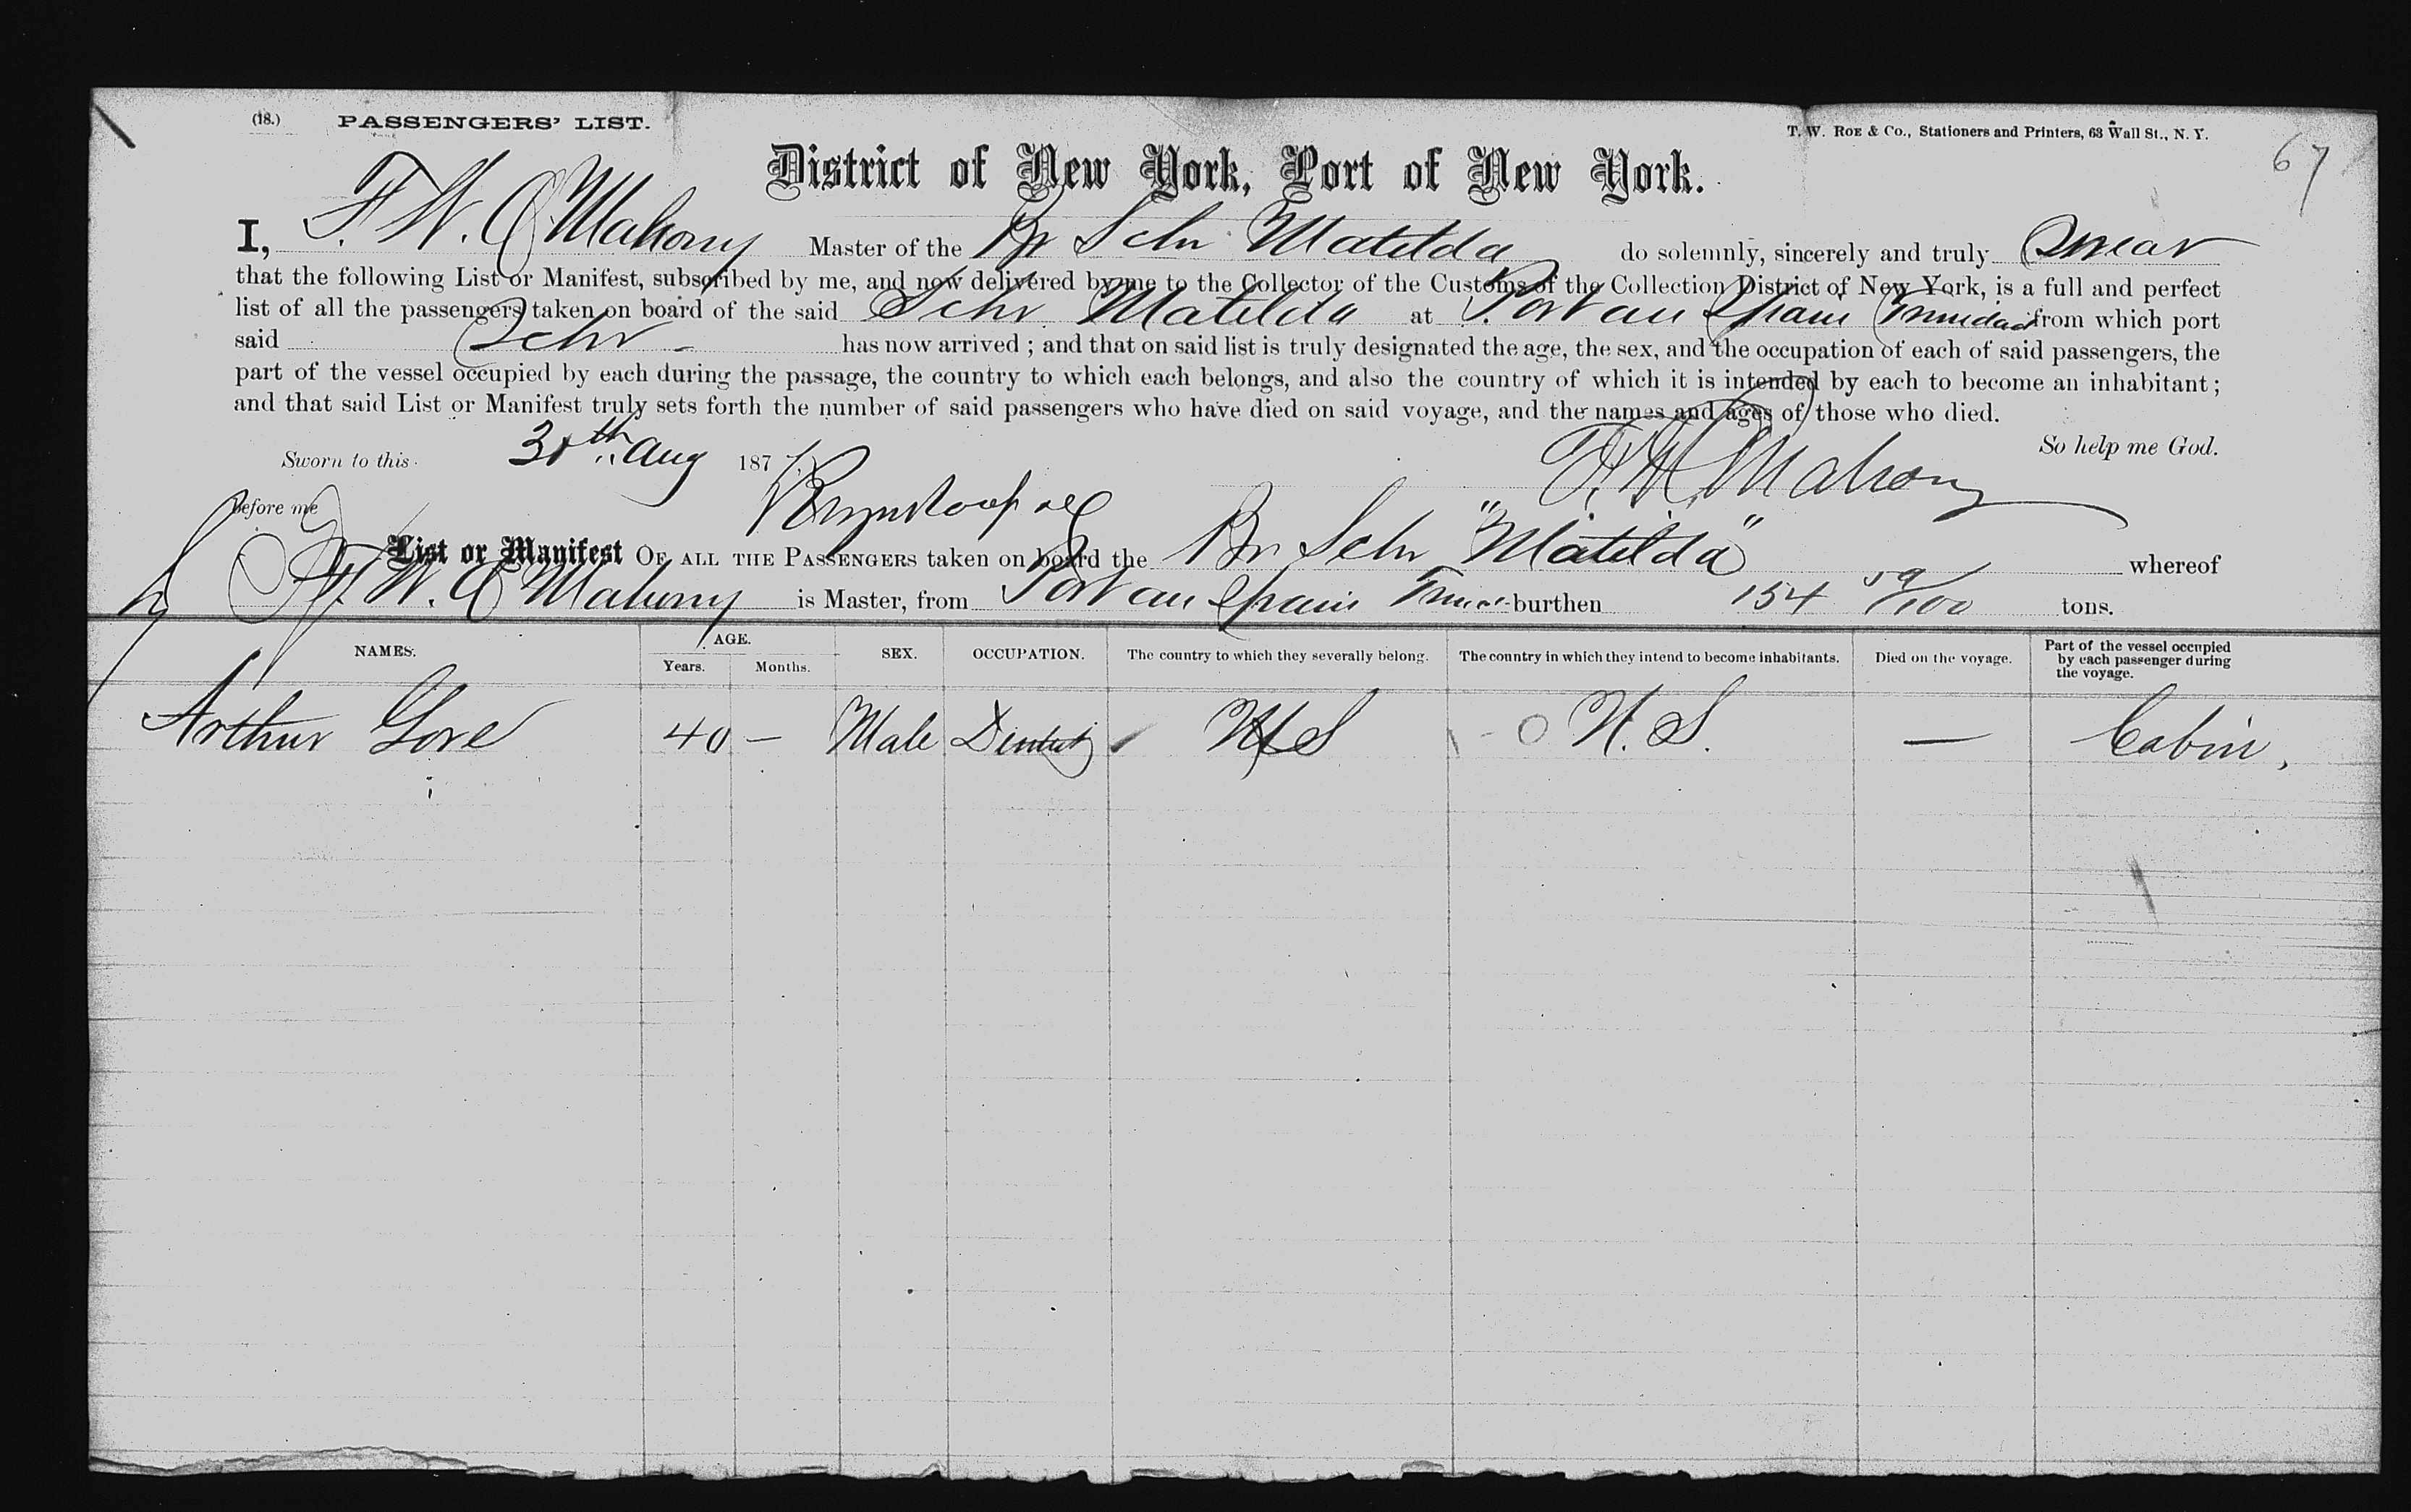 (18.) PASSENGERS' LIST.
T. W. ROE & CO., Stationers and Printers, 63 Wall St., N. Y.
67
District of New York, Port of New York.
I, F. W. O'Mahony Master of the Br Schr Matilda do solemnly, sincerely and truly Swear
that the following List or Manifest, subscribed by me, and now delivered by me to the Collector of the Customs of the Collection District of New York, is a full and perfect
list of all the passengers taken on board of the said Schr Matilda at Port au Spain Trinidad from which port
said Schr has now arrived ; and that on said list is truly designated the age, the sex, and the occupation of each of said passengers, the
part of the vessel occupied by each during the passage, the country to which each belongs, and also the country of which it is intended by each to become an inhabitant ;
and that said List or Manifest truly sets forth the number of said passengers who have died on said voyage, and the names and ages of those who died.
So help me God.
Sworn to this 30th Aug 187
F. W. O'Mahony
Before me
List or Manifest OF ALL THE PASSENGERS taken on board the Br Schr "Matilda" whereof
F. W. O'Mahony is Master, from Port au Spain burthen 154 59/100 tons.
NAMES. AGE. SEX. OCCUPATION. The country to which they severally belong. The country in which they intend to become inhabitants. Died on the voyage. Part of the vessel occupied by each passenger during the voyage.
Years. Months.
Arthur Gore 40 — Male Dentist U S U. S. — Cabin.